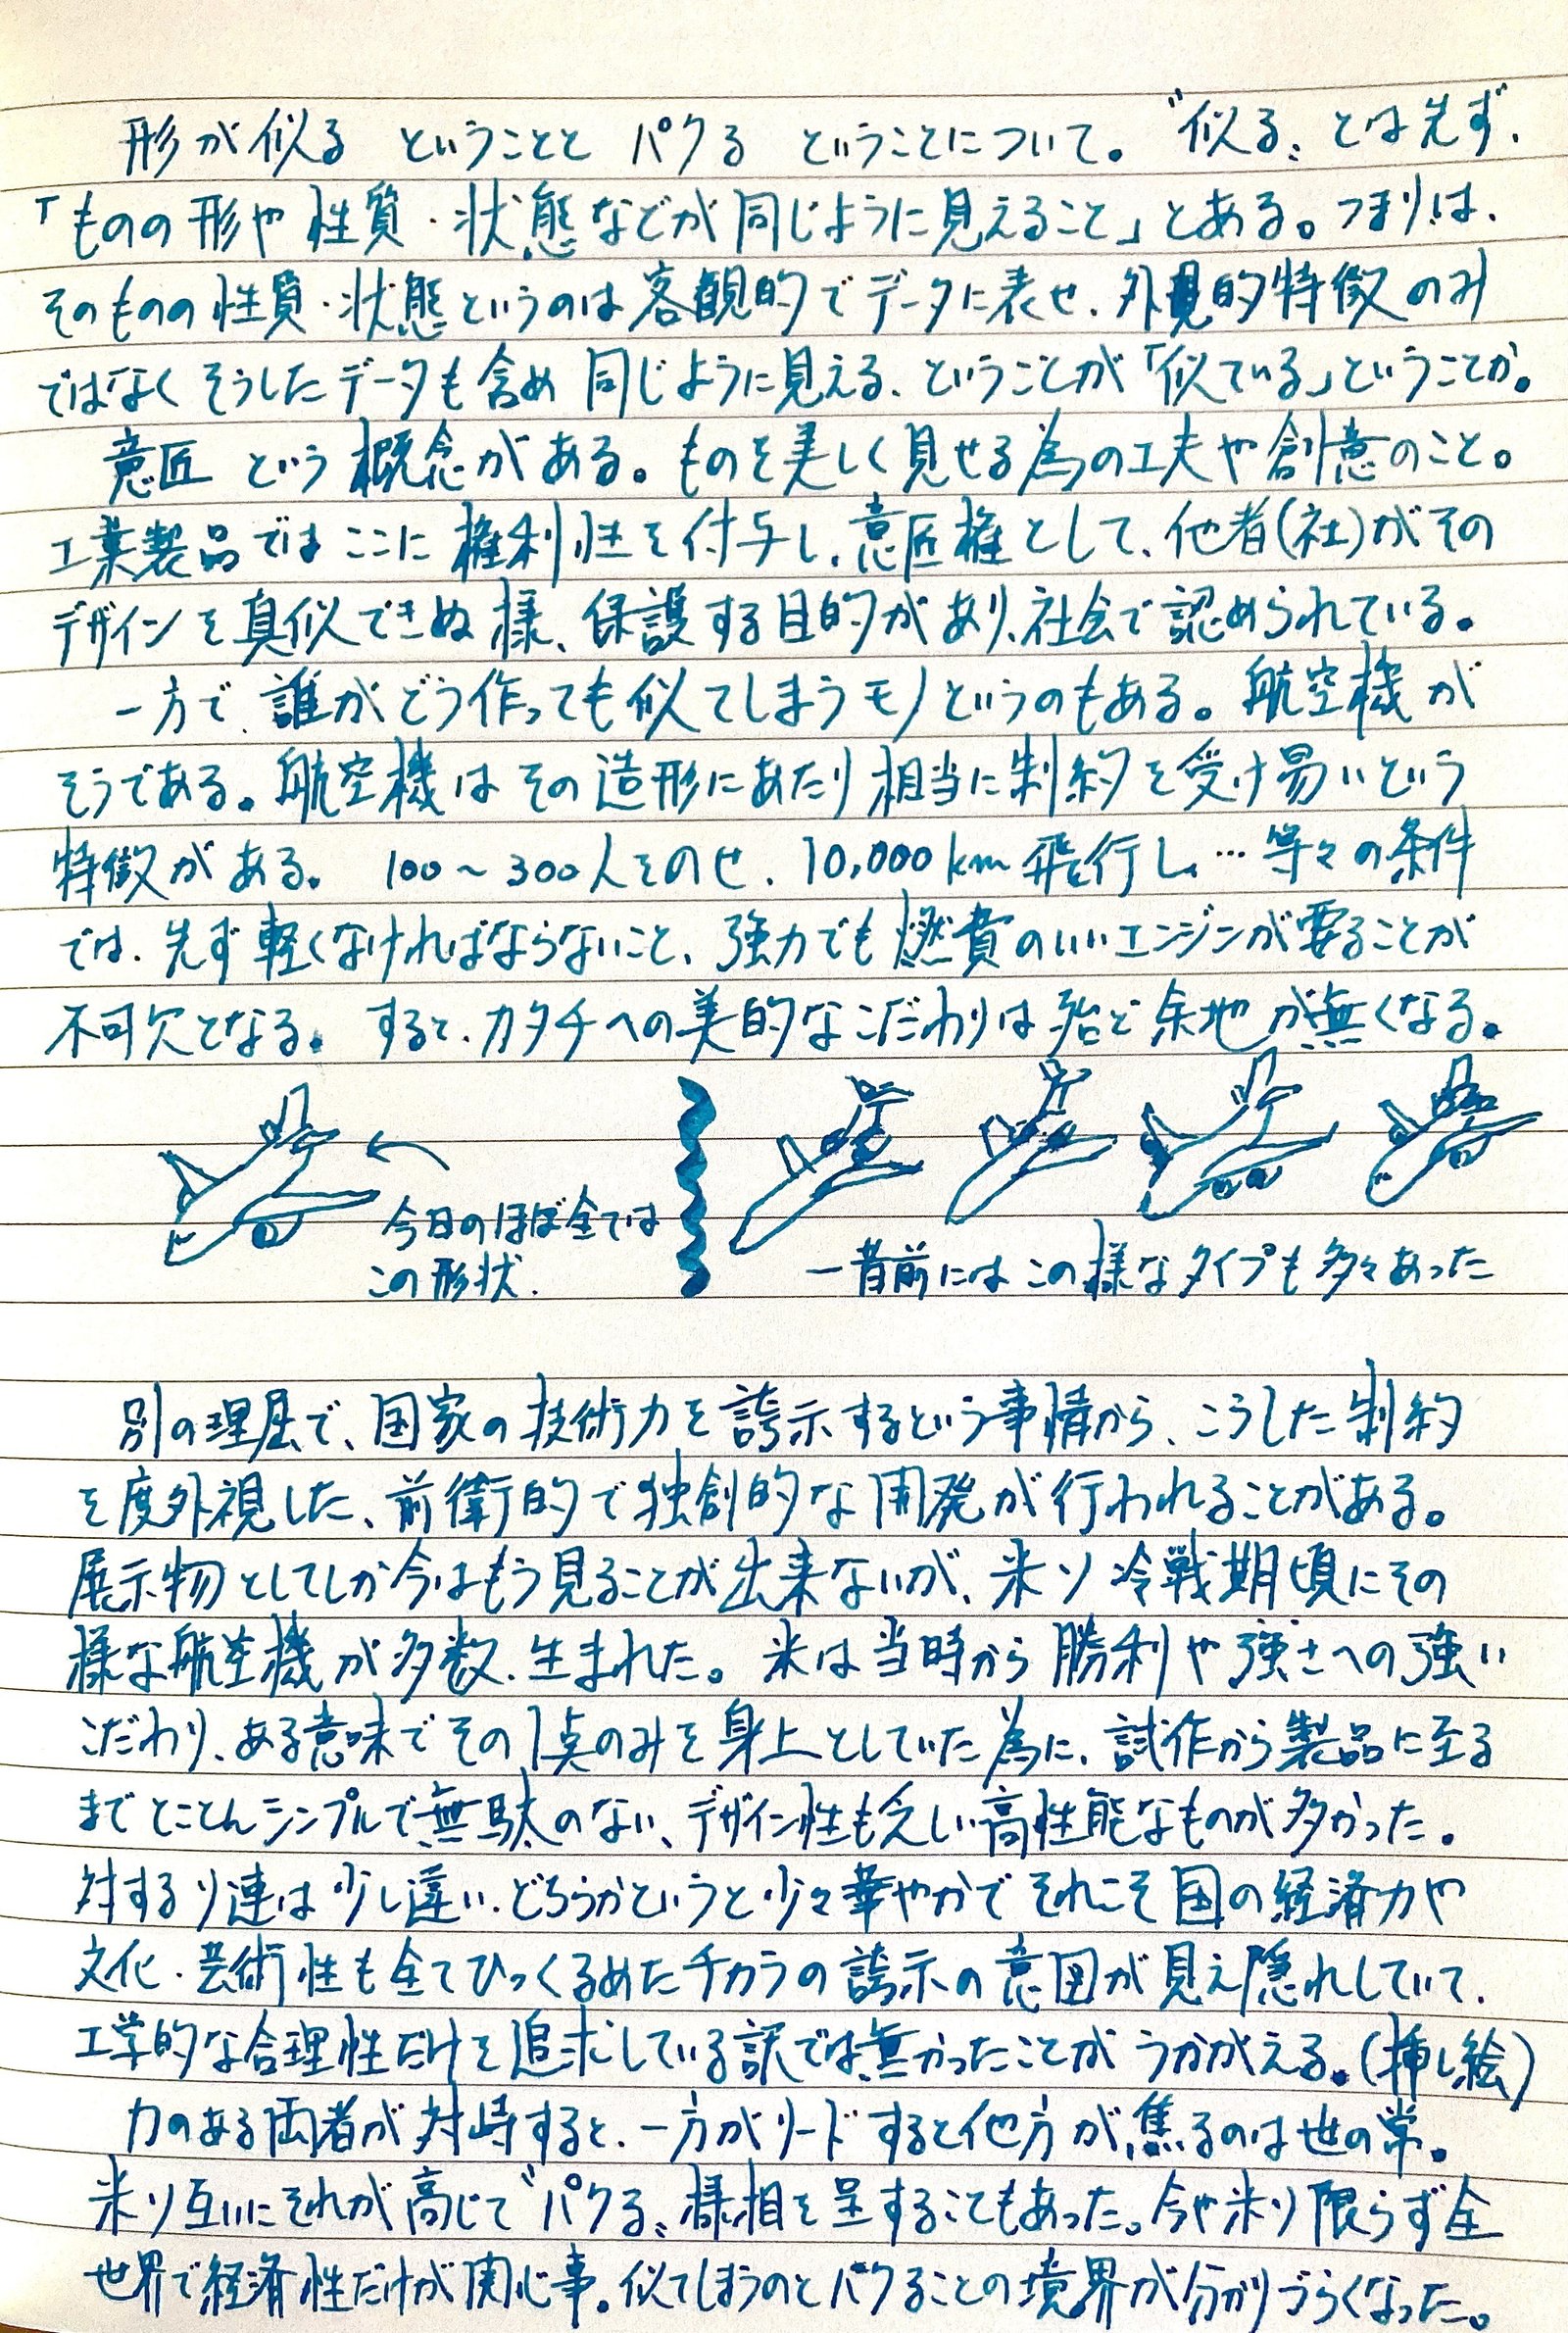 形が似る ということと パクる ということについて。〝似る〟とは先ず、
「ものの形や性質・状態などが同じように見えること」とある。つまりは、
そのものの性質・状態というのは客観的でデータに表せ、外見的特徴のみ
ではなくそうしたデータも含め同じように見える、ということが「似ている」ということか。
意匠 という概念がある。ものを美しく見せる為の工夫や創意のこと。
工業製品ではここに権利性を付与し、意匠権として、他者(社)がその
デザインを真似できぬ様、保護する目的があり、社会で認められている。
一方で、誰がどう作っても似てしまうモノというのもある。航空機が
そうである。航空機はその造形にあたり相当に制約を受け易いという
特徴がある。 100〜300人をのせ、10,000km飛行し、…等々の条件
では、先ず軽くなければならないこと、強力でも燃費のいいエンジンが要ることが
不可欠となる。すると、カタチへの美的なこだわりは殆ど余地が無くなる。
今日のほぼ全ては
この形状.
一昔前にはこの様なタイプも多々あった
別の理屈で、国家の技術力を誇示するという事情から、こうした制約
を度外視した、前衛的で独創的な開発が行われることがある。
展示物としてしか今はもう見ることが出来ないが、米ソ冷戦期頃にその
様な航空機が多数、生まれた。米は当時から勝利や強さへの強い
こだわり、ある意味でその1点のみを身上としていた為に、試作から製品に至る
までとことんシンプルで無駄のない、デザイン性も乏しい高性能なものが多かった。
対するソ連は少し違い、どちらかというと少々華やかでそれこそ国の経済力や
文化・芸術性も全てひっくるめたチカラの誇示の意図が見え隠れしていて、
工学的な合理性だけを追求している訳では無かったことがうかがえる。(挿し絵)
力のある両者が対峙すると、一方がリードすると他方が焦るのは世の常。
米ソ互いにそれが高じて〝パクる〟様相を呈することもあった。今や米ソ限らず全
世界で経済性だけが関心事。似てしまうのとパクることの境界が分かりづらくなった。